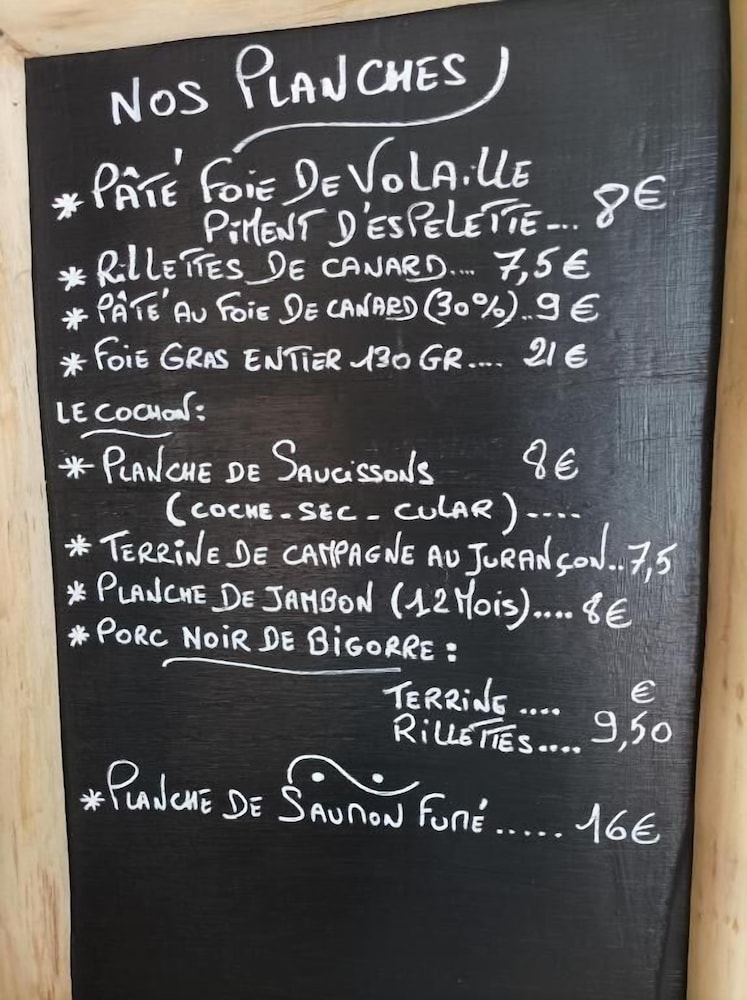 NOS PLANCHES
* PÂTÉ FOIE DE VOLAILLE
PIMENT D'ESPELETTE... 8€
* RILLETTES DE CANARD... 7,5€
* PÂTÉ AU FOIE DE CANARD (30%)..9€
* FOIE GRAS ENTIER 130 GR.... 21€
LE COCHON:
* PLANCHE DE SAUCISSONS 8€
(COCHE-SEC-CULAR)----
* TERRINE DE CAMPAGNE AU JURANÇON..7,5
* PLANCHE DE JAMBON (12 MOIS).... 8€
* PORC NOIR DE BIGORRE:
TERRINE .... €
RILLETTES.... 9,50
* PLANCHE DE SAUMON FUMÉ ..... 16€